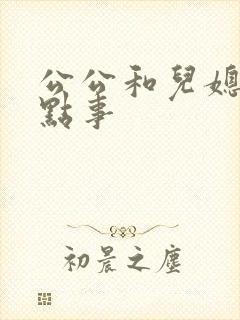 公公和兒媳
點事
初晨之塵